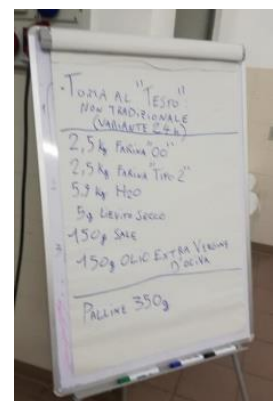 - TORTA AL "TESTO":
NON TRADIZIONALE
(VARIANTE 24h)
2,5 kg FARINA "00"
2,5 kg FARINA "TIPO 2"
kg H2O
5g LIEVITO SECCO
150g SALE
150g OLIO EXTRA VERGINE
D'OLIVA
PALLINE 350g